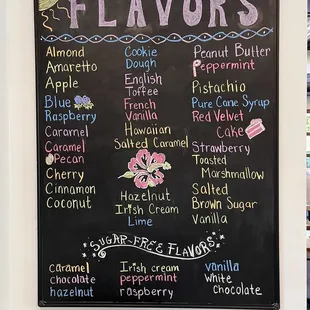 FLAVORS
Almond
Amaretto
Apple
Blue
Raspberry
Caramel
Caramel
Pecan
Cherry
Cinnamon
Coconut
Cookie
Dough
English
Toffee
French
Vanilla
Hawaiian
Salted Caramel
Hazelnut
Irish Cream
Lime
Peanut Butter
Peppermint
Pistachio
Pure Cane Syrup
Red Velvet
Cake
Strawberry
Toasted
Marshmallow
Salted
Brown Sugar
Vanilla
SUGAR-FREE FLAVORS
caramel
chocolate
hazelnut
Irish cream
peppermint
raspberry
vanilla
White
chocolate